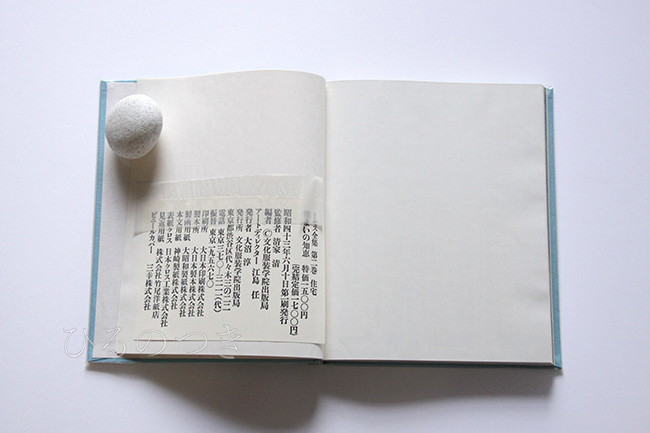 ス全集 第二巻 住宅
いの知恵 特価一五〇〇円
(完結定価一七〇〇円)
昭和四十三年六月十日第一刷発行
監修者 清家 清
編者 ©文化服装学院出版局
アートディレクター 江島 任
発行者 大沼 淳
発行所 文化服装学院出版局
東京都渋谷区代々木三の二二
電話 東京三七〇―三一一一(代)
振替 東京一九五六七〇
印刷所 大日本印刷株式会社
製本所 大日本製本株式会社
製函用紙 大昭和製紙株式会社
本文用紙 神崎製紙株式会社
表紙クロス 日本クロス工業株式会社
見返用紙 株式会社竹尾洋紙店
ビニールカバー 三幸株式会社
ひろのつき